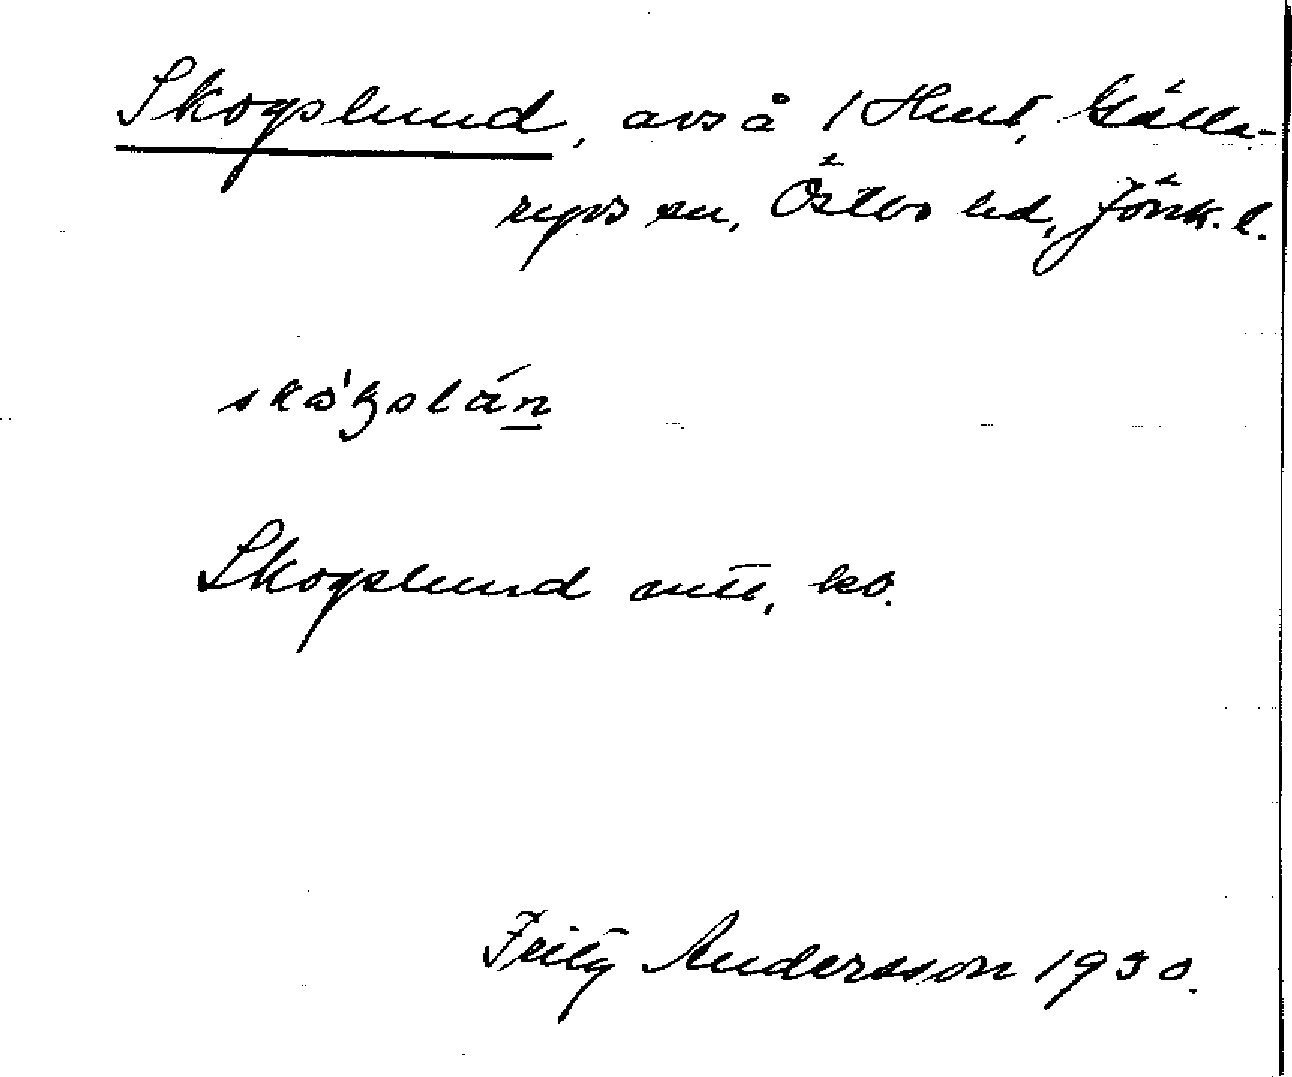 Skogslund, avs å 1 Hult, Gälla-
ryds sn, Östbo hd, Jönk. l.
Skogslund mtl, ko.
Fritz Andersson 1930.